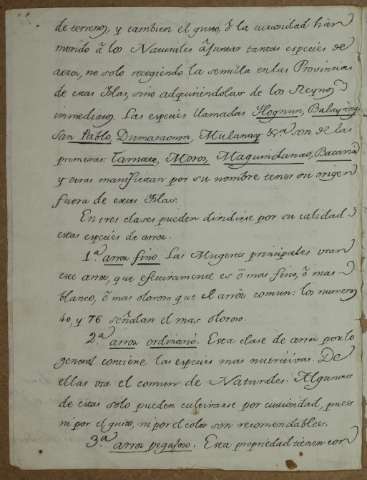 de terreno, y tambien el gusto, ó la curiosidad han
movido à los Naturales à juntar tantas especies de
arroz, no solo recogiendo la semilla en las Provincias
de estas Yslas, sino adquiriendolas de los Reynos
inmediatos. Las especies llamadas
San Pablo, Dumaraoun, Mulanay &ra. son de las
primeras: Ternate, Moros, Maguindanao,
y otras manifiestan por su nombre tener su origen
fuera de estas Yslas.
En tres clases pueden dividirse por su calidad
estas especies de arroz.
1.ª arroz fino. Las Mugeres principales usan
este arroz, que efectivamente es ô mas fino, ô mas
blanco, ô mas oloroso que el arròz comun: los numeros
40, y 76 señalan el mas oloroso.
2.ª arroz ordinario. Esta clase de arroz por lo
general contiene las especies mas nutritivas. De
ellas usa el comun de Naturales. Algunas
de estas solo pueden cultivarse por curiosidad, pues
ni por el gusto, ni por el color son recomendables.
3.ª arroz pegajoso. Esta propiedad tienen con